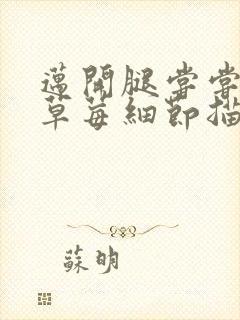 邁開腿嘗嘗
草莓細節描
蘇明